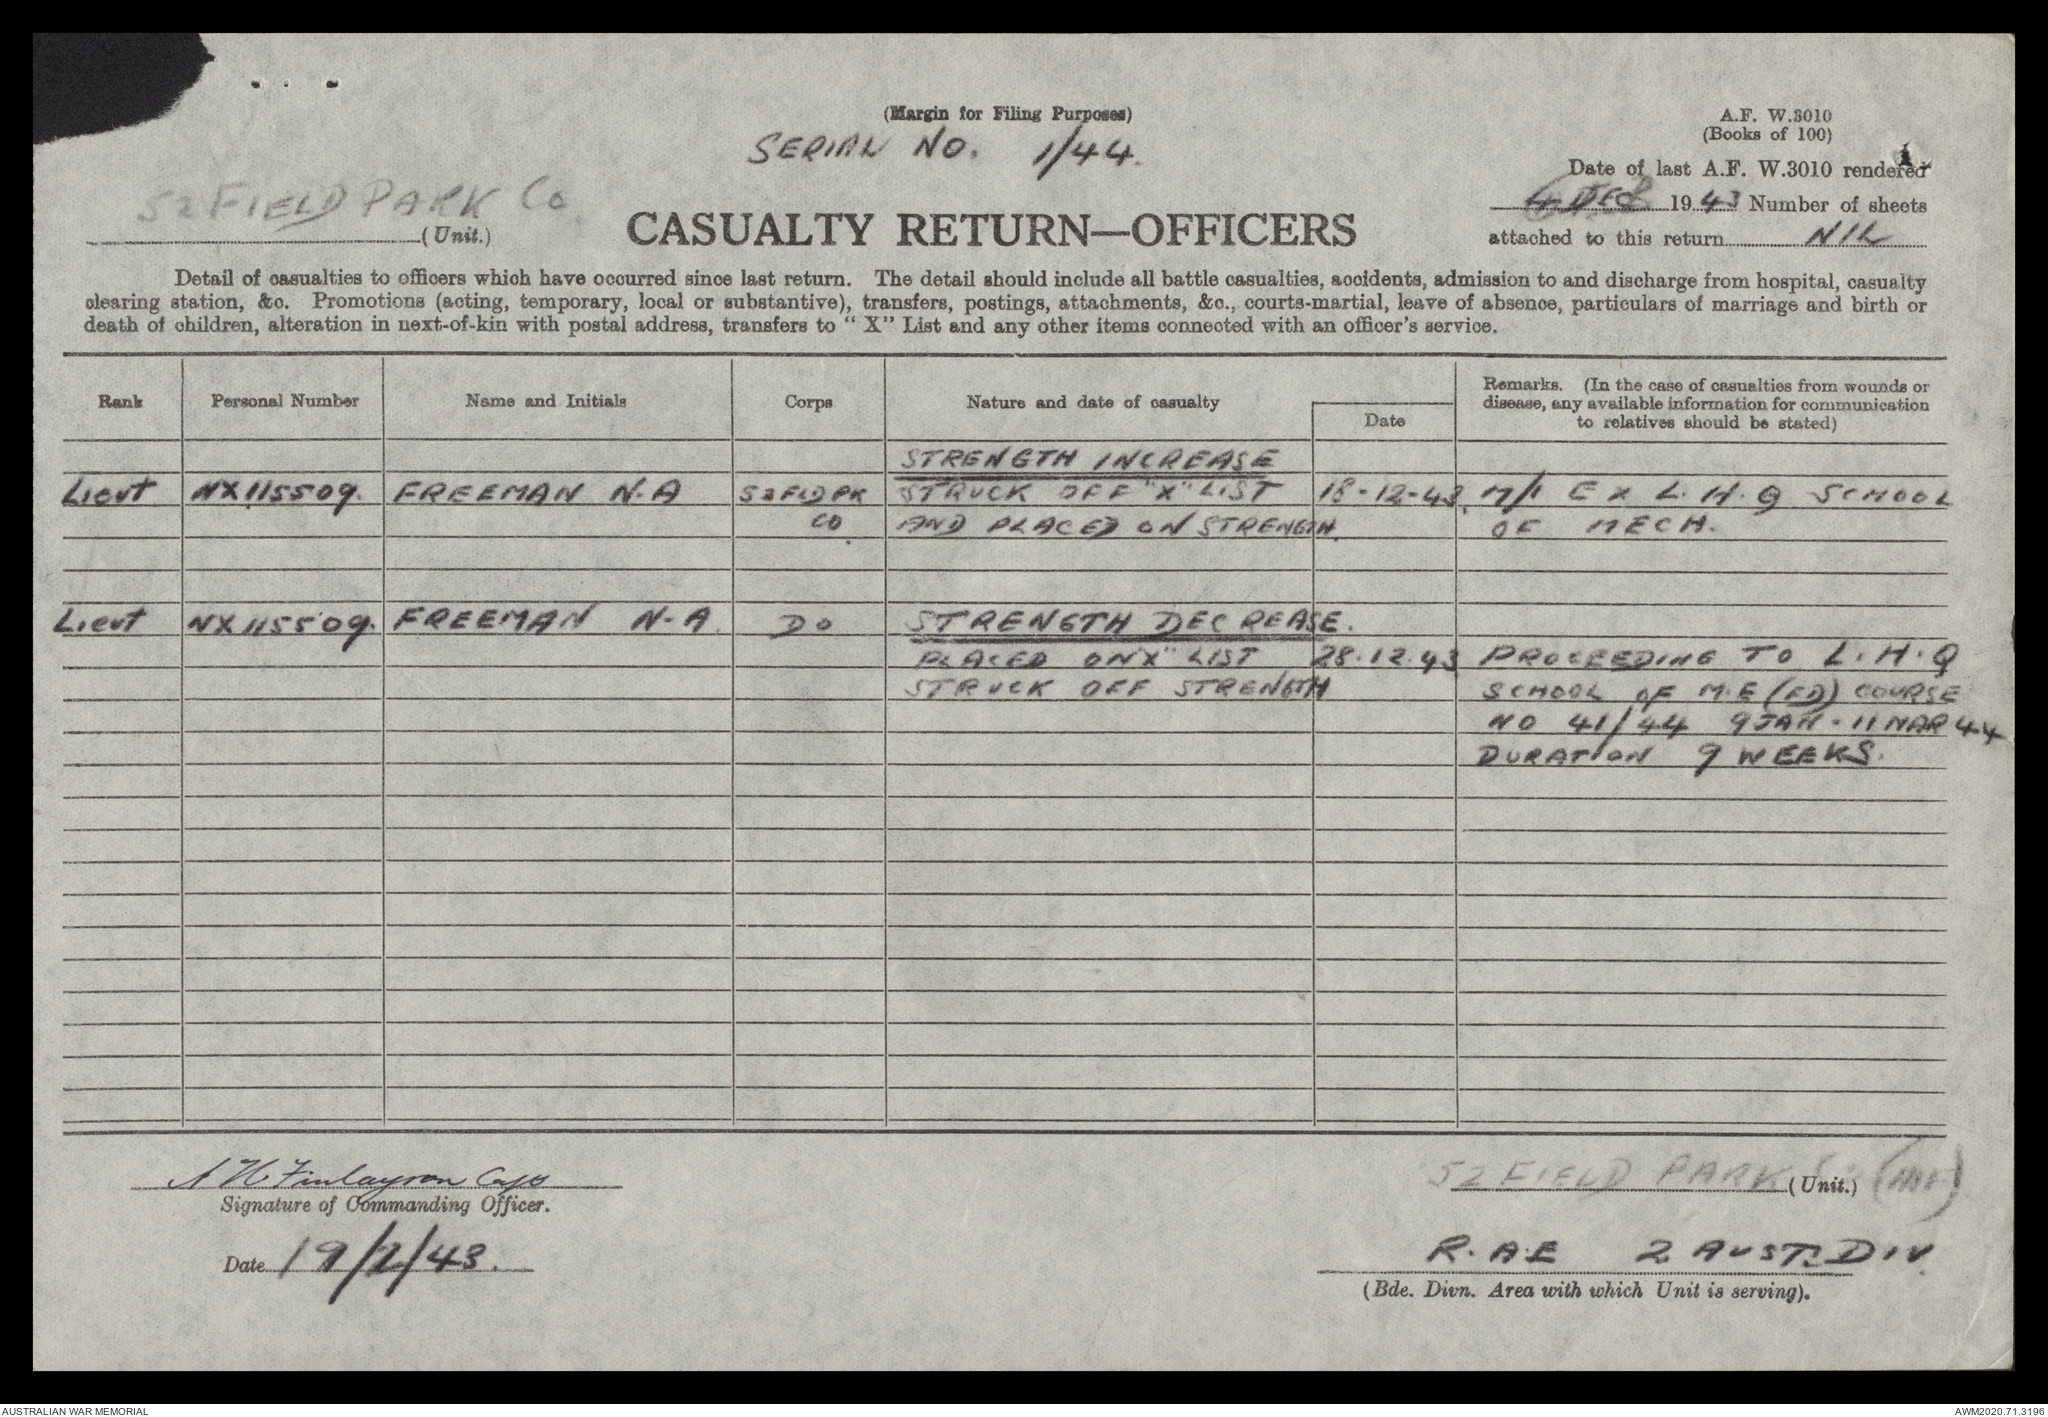 (Margin for Filing Purposes)
SERIAL NO. 1/44.
A.F. W.3010
(Books of 100)
52 FIELD PARK Co.
(Unit.)
CASUALTY RETURN—OFFICERS
Date of last A.F. W.3010 rendered
4 DEC 1943 Number of sheets
attached to this return NIL
Detail of casualties to officers which have occurred since last return. The detail should include all battle casualties, accidents, admission to and discharge from hospital, casualty
clearing station, &c. Promotions (acting, temporary, local or substantive), transfers, postings, attachments, &c., courts-martial, leave of absence, particulars of marriage and birth or
death of children, alteration in next-of-kin with postal address, transfers to "X" List and any other items connected with an officer's service.
Rank Personal Number Name and Initials Corps Nature and date of casualty Date Remarks. (In the case of casualties from wounds or
disease, any available information for communication
to relatives should be stated)
STRENGTH INCREASE
Lieut NX115509. FREEMAN N.A 52 FLD PK STRUCK OFF "X" LIST 18-12-43. M/I EX L.H.Q SCHOOL
CO. AND PLACED ON STRENGTH. OF MECH.
Lieut NX115509. FREEMAN N.A. DO STRENGTH DECREASE.
PLACED ON "X" LIST 28.12.43 PROCEEDING TO L.H.Q
STRUCK OFF STRENGTH SCHOOL OF M.E (FD) COURSE
NO 41/44 9 JAN - 11 MAR 44
DURATION 9 WEEKS.
A H Finlayson Capt
Signature of Commanding Officer.
Date 19/1/43.
52 FIELD PARK Co (AIF)
(Unit.)
R.A.E 2 AUST. DIV.
(Bde. Divn. Area with which Unit is serving).
AUSTRALIAN WAR MEMORIAL
AWM2020.71.3196